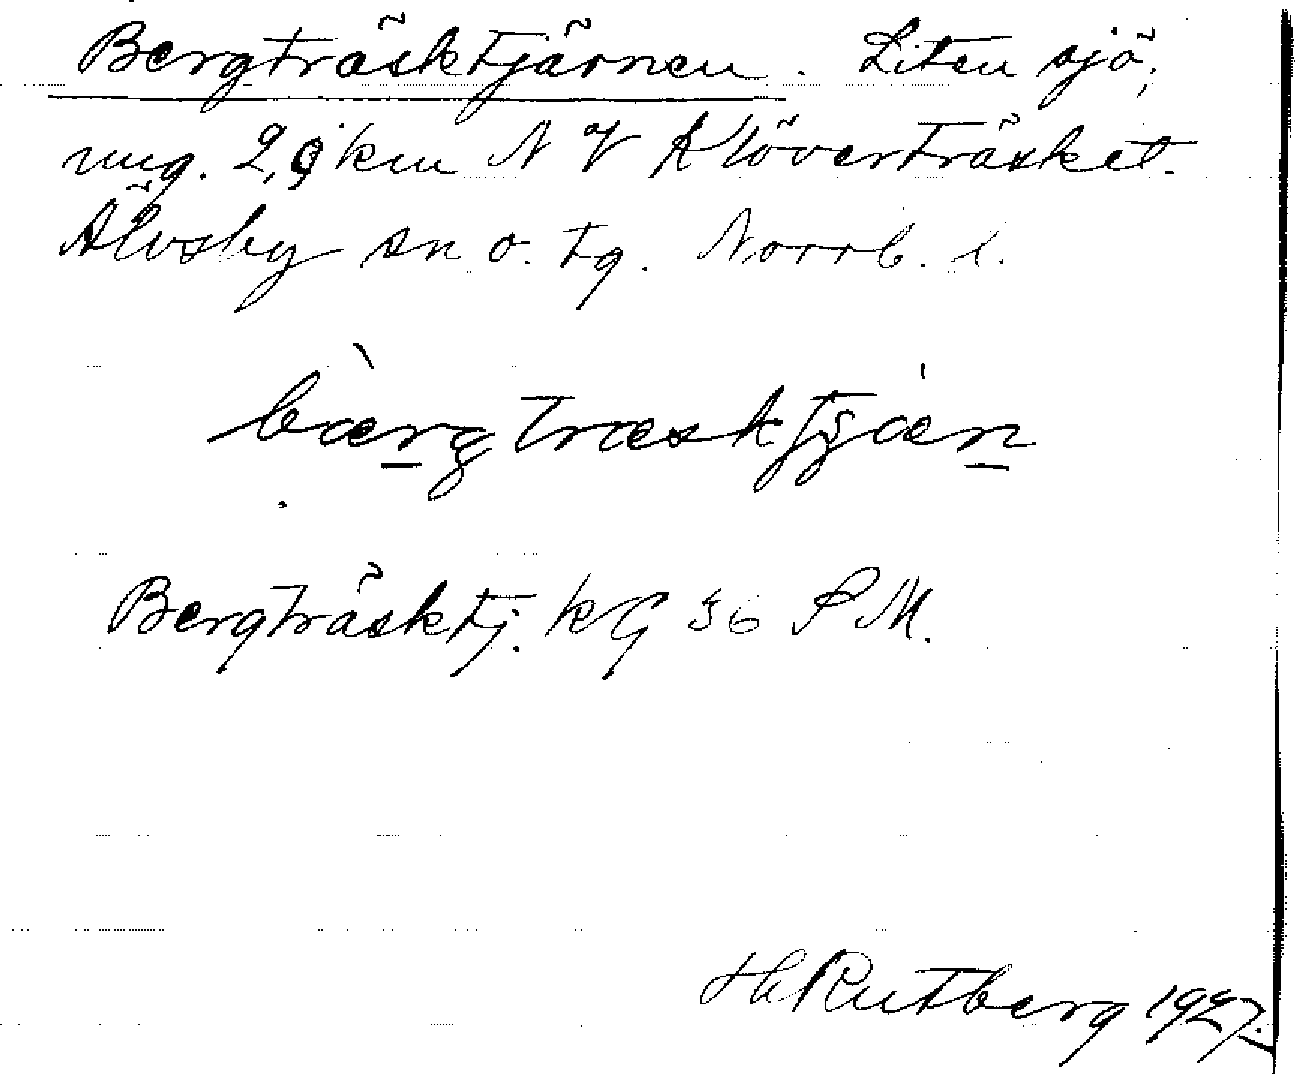 Bergträsktjärnen. Liten sjö,
ung. 2,9 km N V Klöverträsket.
Älvsby sn o. tg. Norrb. l.
bærgtræsktjæn
Bergträsktj. KG 36 S M.
H. Rutberg 1927.